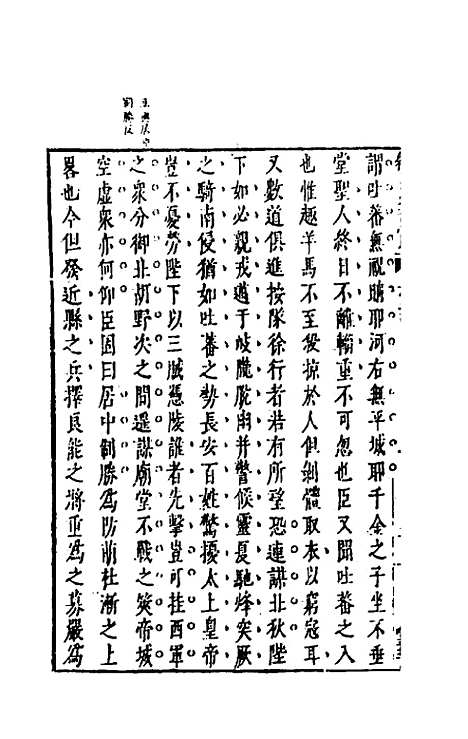 謂吐蕃無覘賭耶河右無平城耶千金之子坐不垂
堂聖人終日不離輜重不可忽也臣又聞吐蕃之入
也惟趣羊馬不至後掠於人但剝體取衣以窮寇耳
又數道俱進按隊徐行者若有所望恐連謀北狄陛
下如必親戎邁于岐隴脫幽并警候靈夏馳烽突厥
之騎南侵猶如吐蕃之勢長安百姓驚擾太上皇帝
豈不憂勞陛下以三賊憑陵誰者先擊豈可挂西軍
之衆分御北胡野次之間遥謀廟堂不戰之筴帝城
空虛衆亦何仰臣固曰居中制勝為防萌杜漸之上
畧也今但發近縣之兵擇良能之將重為之募嚴為